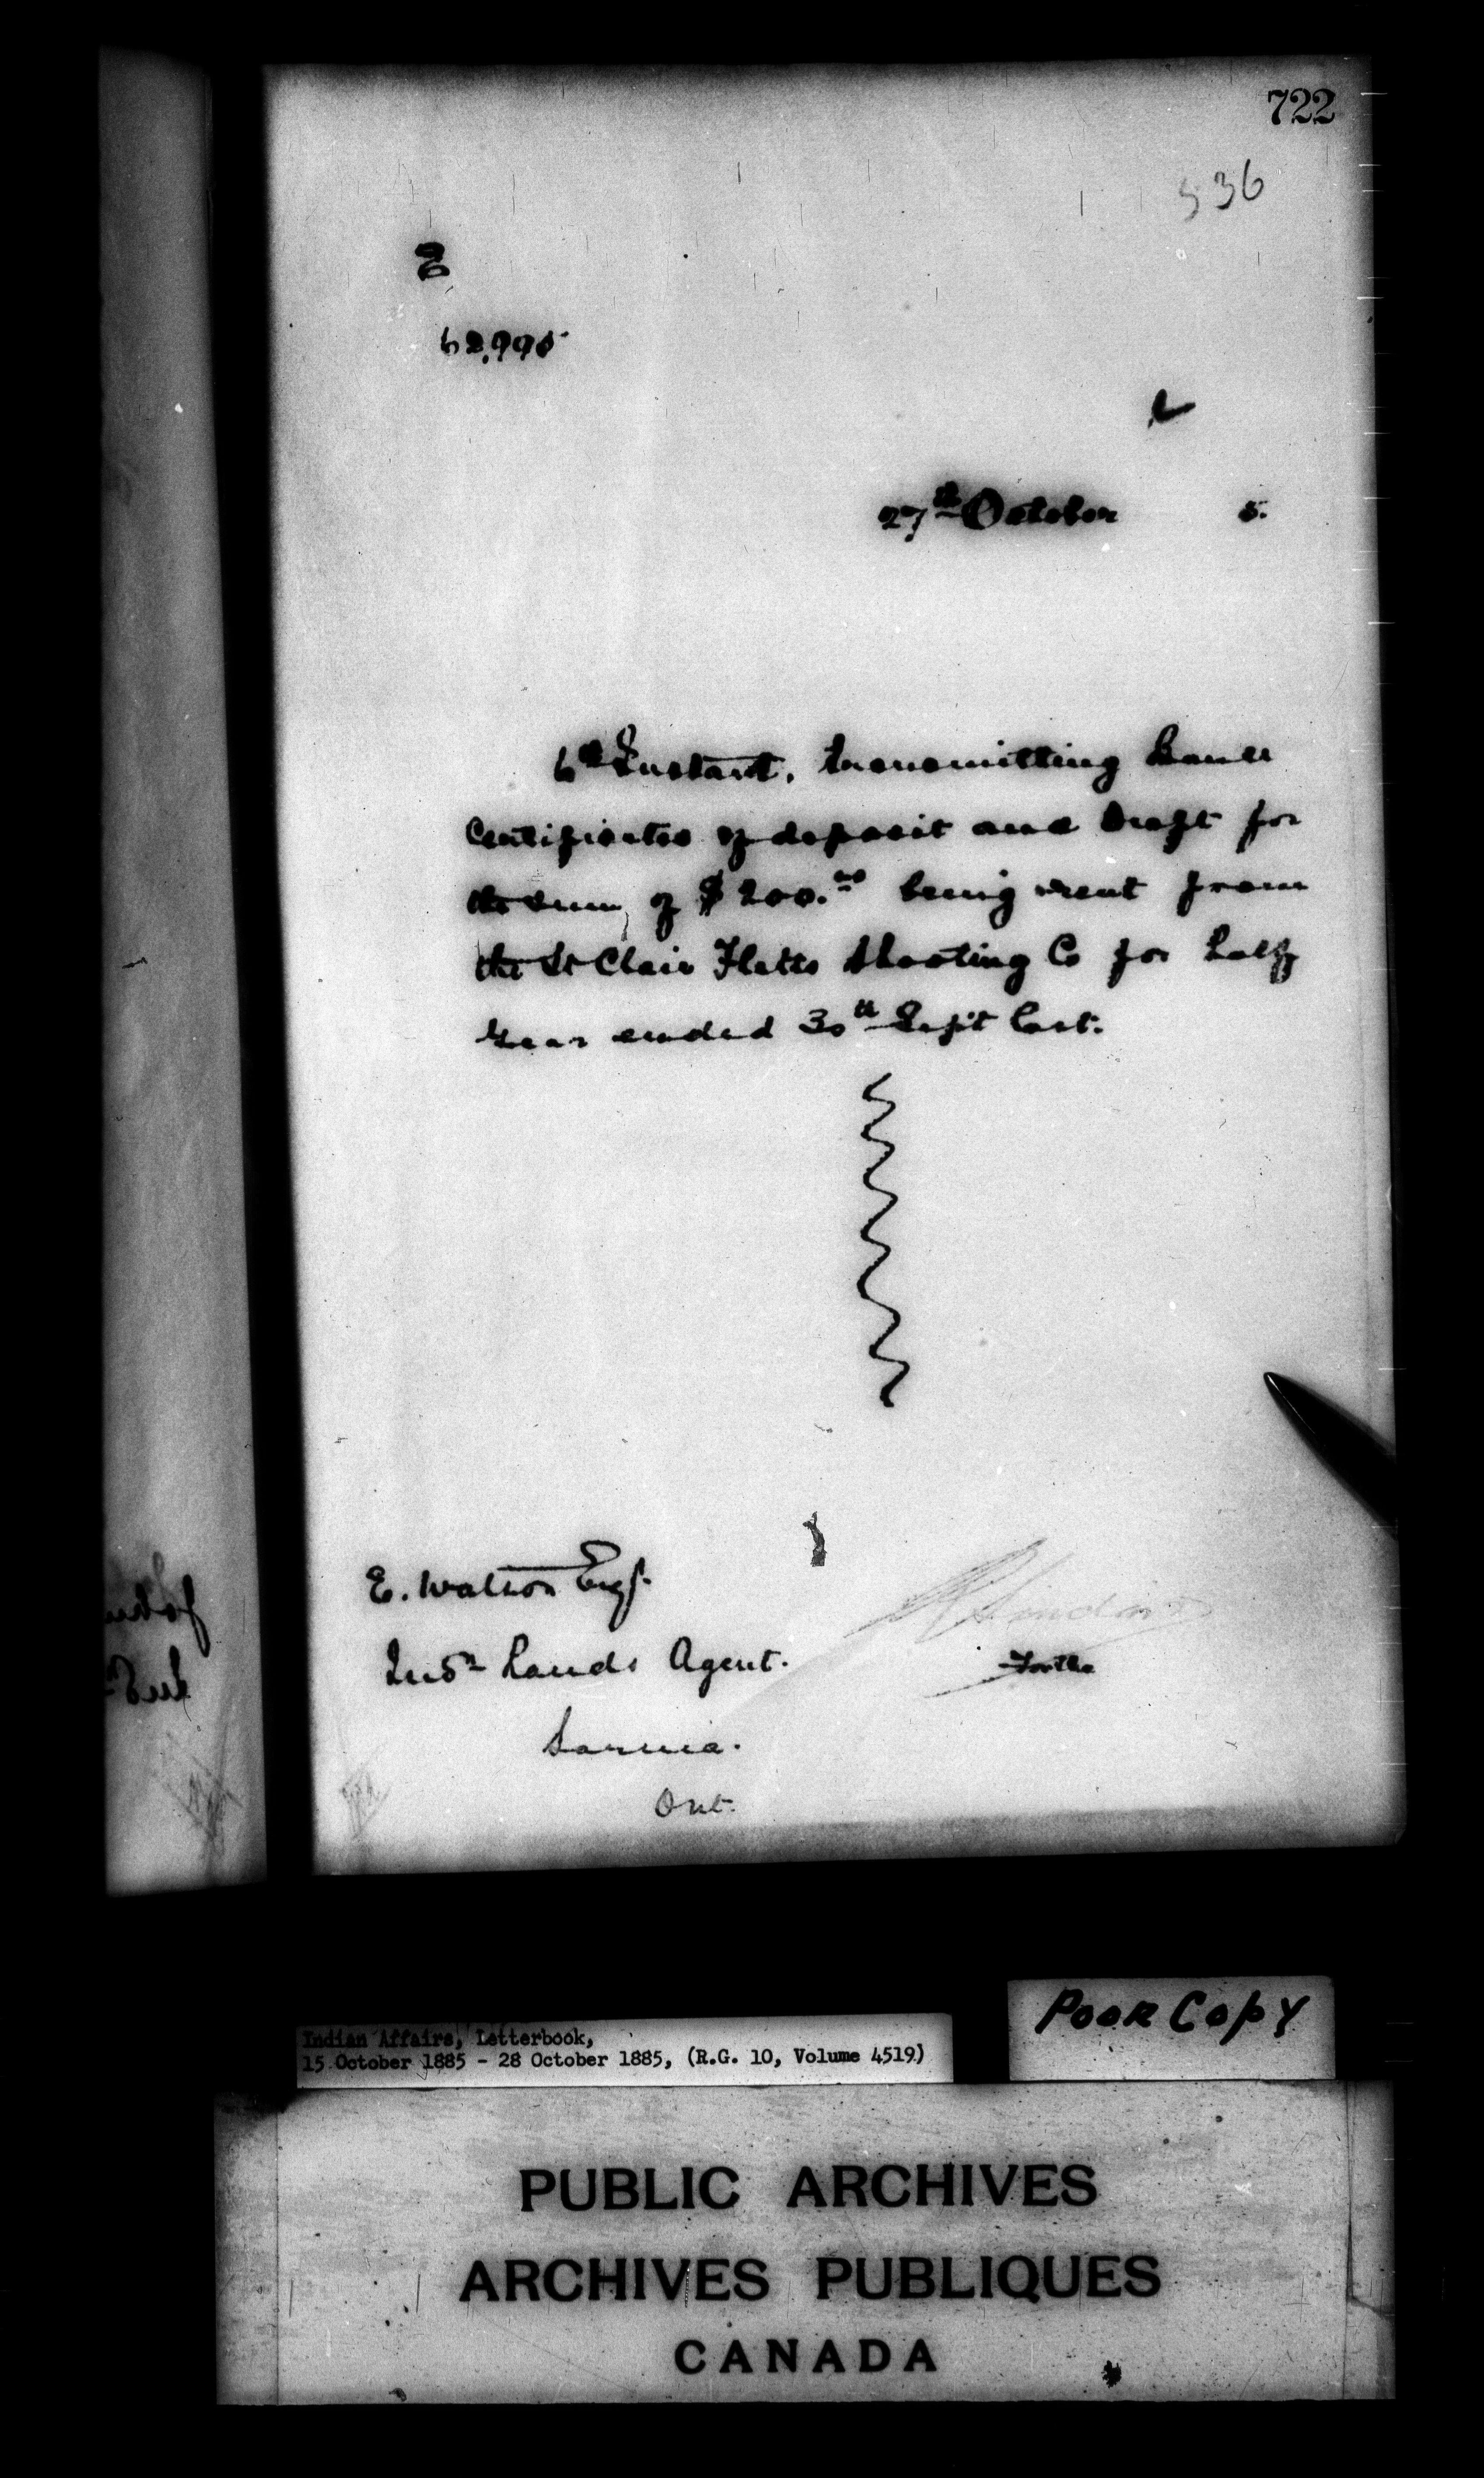 722
536
62,995
27th October 5.
6th Instant, transmitting Bank
Certificates of deposit and Draft for
the sum of $200.00 being rent from
the St Clair Flatts Shooting Co for half
year ended 30th Sept last.
E. Watson Esqr.
Indn Lands Agent.
Sarnia.
Ont.
R Sinclair
For the
Poor Copy
Indian Affairs, Letterbook,
15 October 1885 - 28 October 1885, (R.G. 10, Volume 4519)
PUBLIC ARCHIVES
ARCHIVES PUBLIQUES
CANADA